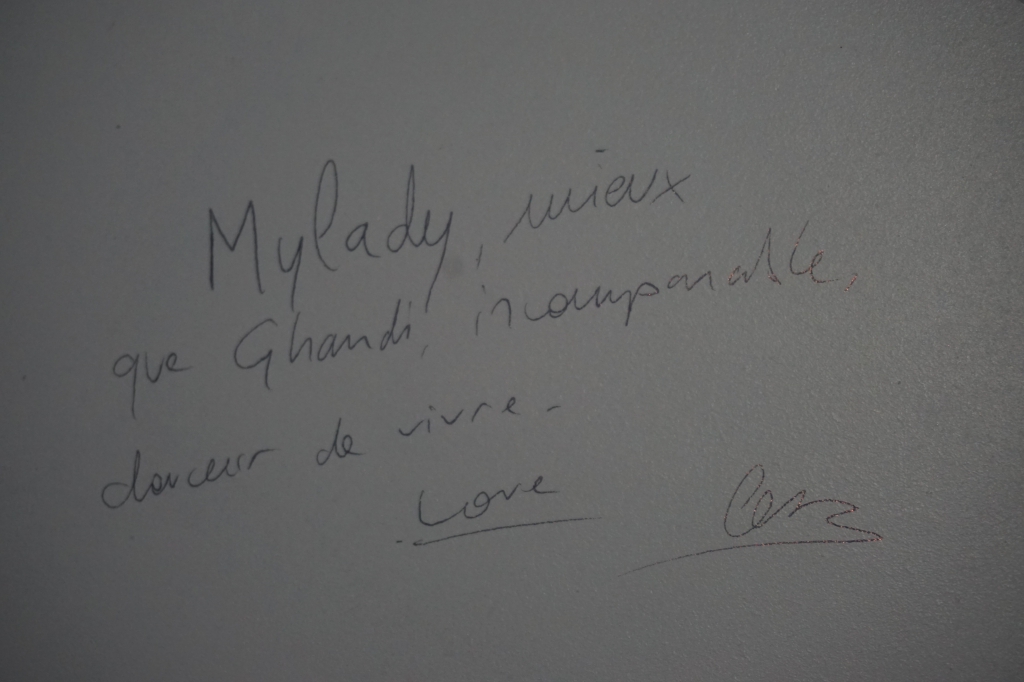 Mylady, mieux
que Ghandi, incomparable,
douceur de vivre -
Love